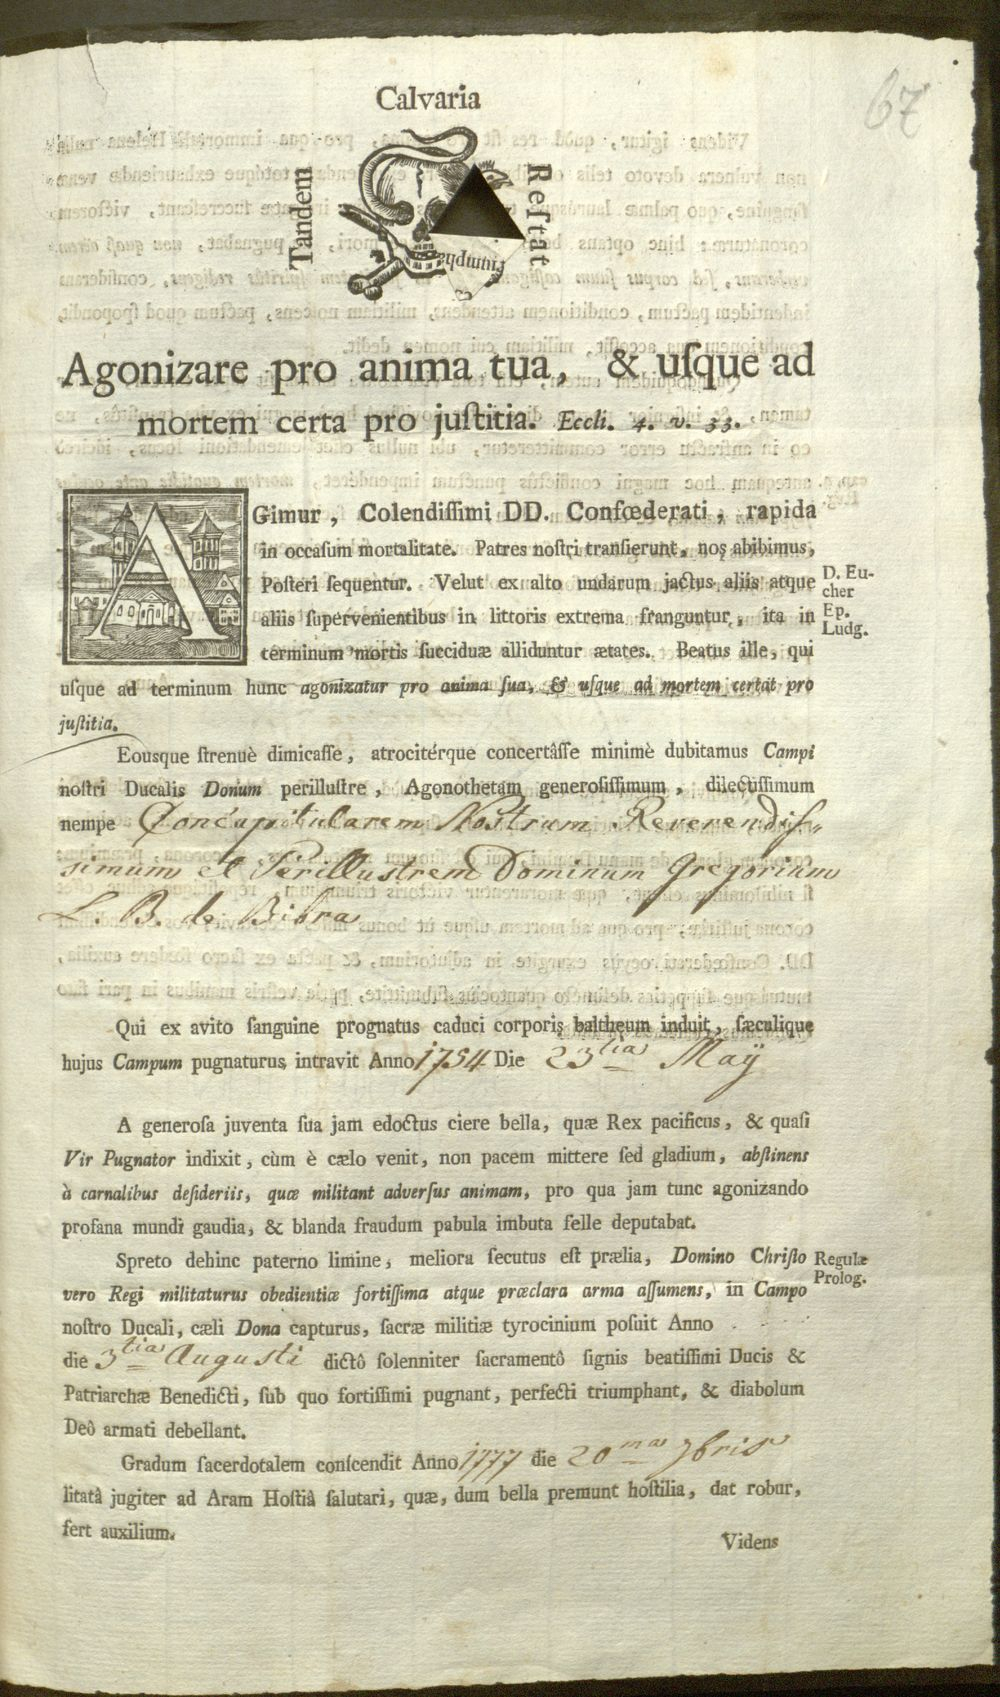 67
Calvaria
Tandem
Reſtat
Triumphans
Agonizare pro anima tua, & uſque ad
mortem certa pro juſtitia. Eccli. 4. v. 33.
AGimur, Colendiſſimi DD. Confœderati, rapida
in occaſum mortalitate. Patres noſtri tranſierunt, nos abibimus,
Poſteri ſequentur. Velut ex alto undarum jactus aliis atque
aliis ſupervenientibus in littoris extrema franguntur, ita in
terminum mortis ſucciduæ alliduntur ætates. Beatus ille, qui
uſque ad terminum hunc agonizatur pro anima ſua, & uſque ad mortem certat pro
juſtitia.
D. Eu-
cher
Ep.
Ludg.
Eousque ſtrenuè dimicaſſe, atrocitérque concertâſſe minimè dubitamus Campi
noſtri Ducalis Donum perilluſtre, Agonothetam generoſiſſimum, dilectiſſimum
nempe Concapitularem Nostrum Reverendiſ-
simum et Perillustrem Dominum Gregorium
L. B. de Bibra
Qui ex avito ſanguine prognatus caduci corporis baltheum induit, ſæculique
hujus Campum pugnaturus intravit Anno 1754 Die 23tia Maÿ
A generoſa juventa ſua jam edoctus ciere bella, quæ Rex pacificus, & quaſi
Vir Pugnator indixit, cùm è cælo venit, non pacem mittere ſed gladium, abſtinens
à carnalibus deſideriis, quæ militant adverſus animam, pro qua jam tunc agonizando
profana mundi gaudia, & blanda fraudum pabula imbuta felle deputabat.
Spreto dehinc paterno limine, meliora ſecutus eſt prælia, Domino Chriſto
vero Regi militaturus obedientiæ fortiſſima atque præclara arma aſſumens, in Campo
noſtro Ducali, cæli Dona capturus, ſacræ militiæ tyrocinium poſuit Anno
die 3tia Augusti dictô ſolenniter ſacramentô ſignis beatiſſimi Ducis &
Patriarchæ Benedicti, ſub quo fortiſſimi pugnant, perfecti triumphant, & diabolum
Deô armati debellant.
Regulæ
Prolog.
Gradum ſacerdotalem conſcendit Anno 1777 die 20ma 7bris
litatâ jugiter ad Aram Hoſtiâ ſalutari, quæ, dum bella premunt hoſtilia, dat robur,
fert auxilium.
Videns